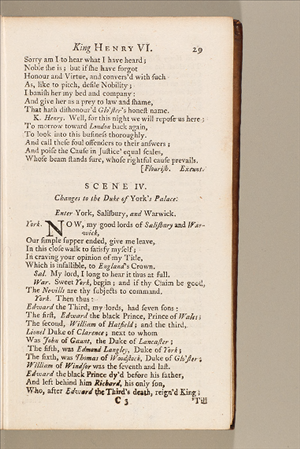 King HENRY VI. 29
Sorry am I to hear what I have heard;
Noble she is; but if she have forgot
Honour and Virtue, and convers'd with such
As, like to pitch, defile Nobility;
I banish her my bed and company:
And give her as a prey to law and shame,
That hath dishonour'd Glo'ster's honest name.
K. Henry. Well, for this night we will repose us here:
To morrow toward London back again,
To look into this business thoroughly,
And call these foul offenders to their answers;
And poise the Cause in Justice' equal scales,
Whose beam stands sure, whose rightful cause prevails.
[Flourish. Exeunt.
SCENE IV.
Changes to the Duke of York's Palace.
Enter York, Salisbury, and Warwick.
York. NOW, my good lords of Salisbury and War-
wick,
Our simple supper ended, give me leave,
In this close walk to satisfy myself;
In craving your opinion of my Title,
Which is infallible, to England's Crown.
Sal. My lord, I long to hear it thus at full.
War. Sweet York, begin; and if thy Claim be good,
The Nevills are thy subjects to command.
York. Then thus:
Edward the Third, my lords, had seven sons:
The first, Edward the black Prince, Prince of Wales;
The second, William of Hatfield; and the third,
Lionel Duke of Clarence; next to whom
Was John of Gaunt, the Duke of Lancaster;
The fifth, was Edmond Langley, Duke of York;
The sixth, was Thomas of Woodstock, Duke of Glo'ster;
William of Windsor was the seventh and last.
Edward the black Prince dy'd before his father,
And left behind him Richard, his only son,
Who, after Edward the Third's death, reign'd King;
C 3 'Till